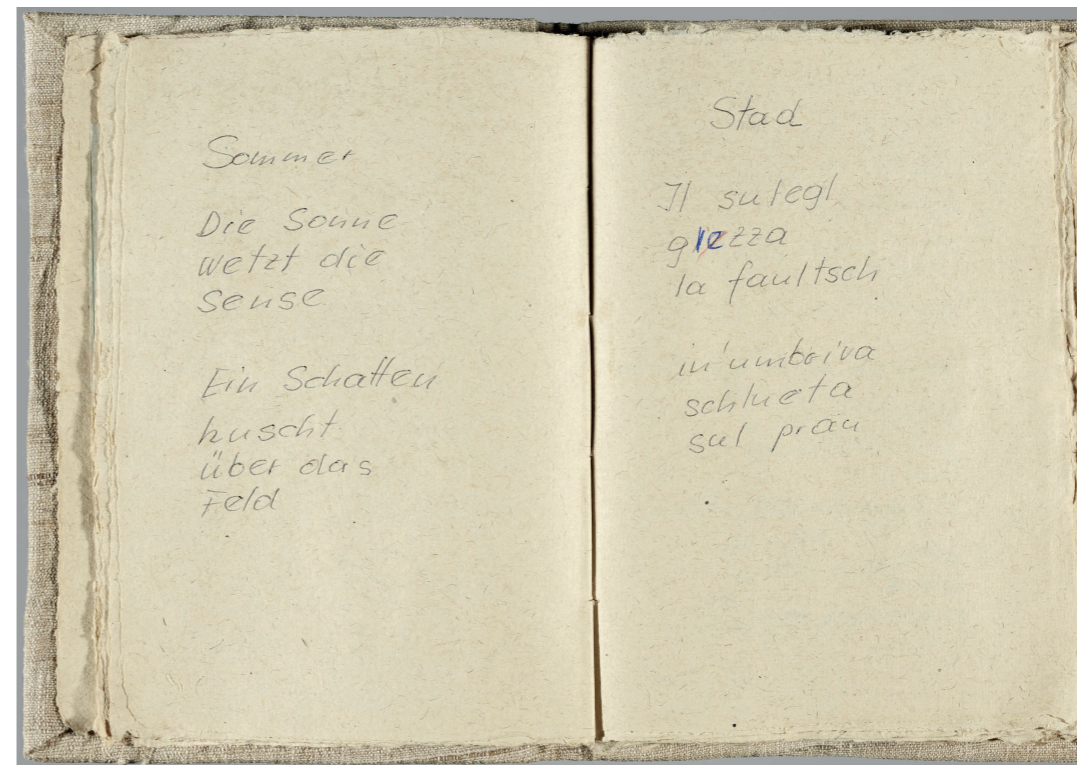 Sommer
Die Sonne
wetzt die
Sense
Ein Schatten
huscht
über das
Feld
Stad
Il sulegl
glezza
la faultsch
in'umbriva
schlueta
sul prau